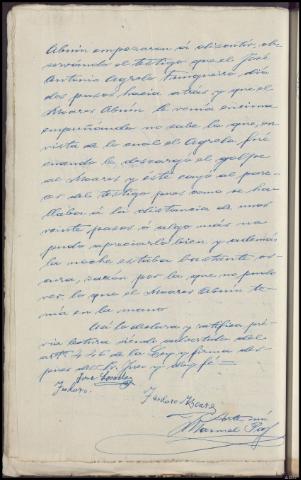 Abuin empezaron á discutir, ob-
servando el testigo que el José
Antonio Agrelo Fungueiro, dió
dos pasos hacia atrás y que el
Moares Abuin le venía encima
empuñando no sabe lo que, en
vista de lo cual el Agrelo fué
cuando le descargó el golpe
al Moares y éste cayó al pare-
cer del testigo pues como se ha-
llaba á la distancia de unos
veinte pasos ó algo más no
pudo apreciarlo bien y además
la noche estaba bastante os-
cura, razón por la que no pudo
ver lo que el Moares Abuin te-
nía en la mano
Así lo declara y ratifica pré-
via lectura siendo advertido del
artº 446 de la Ley y firma des-
pues del Sr. Juez y doy fé =
José González
Isidoro Moares
Ante mí
Manuel